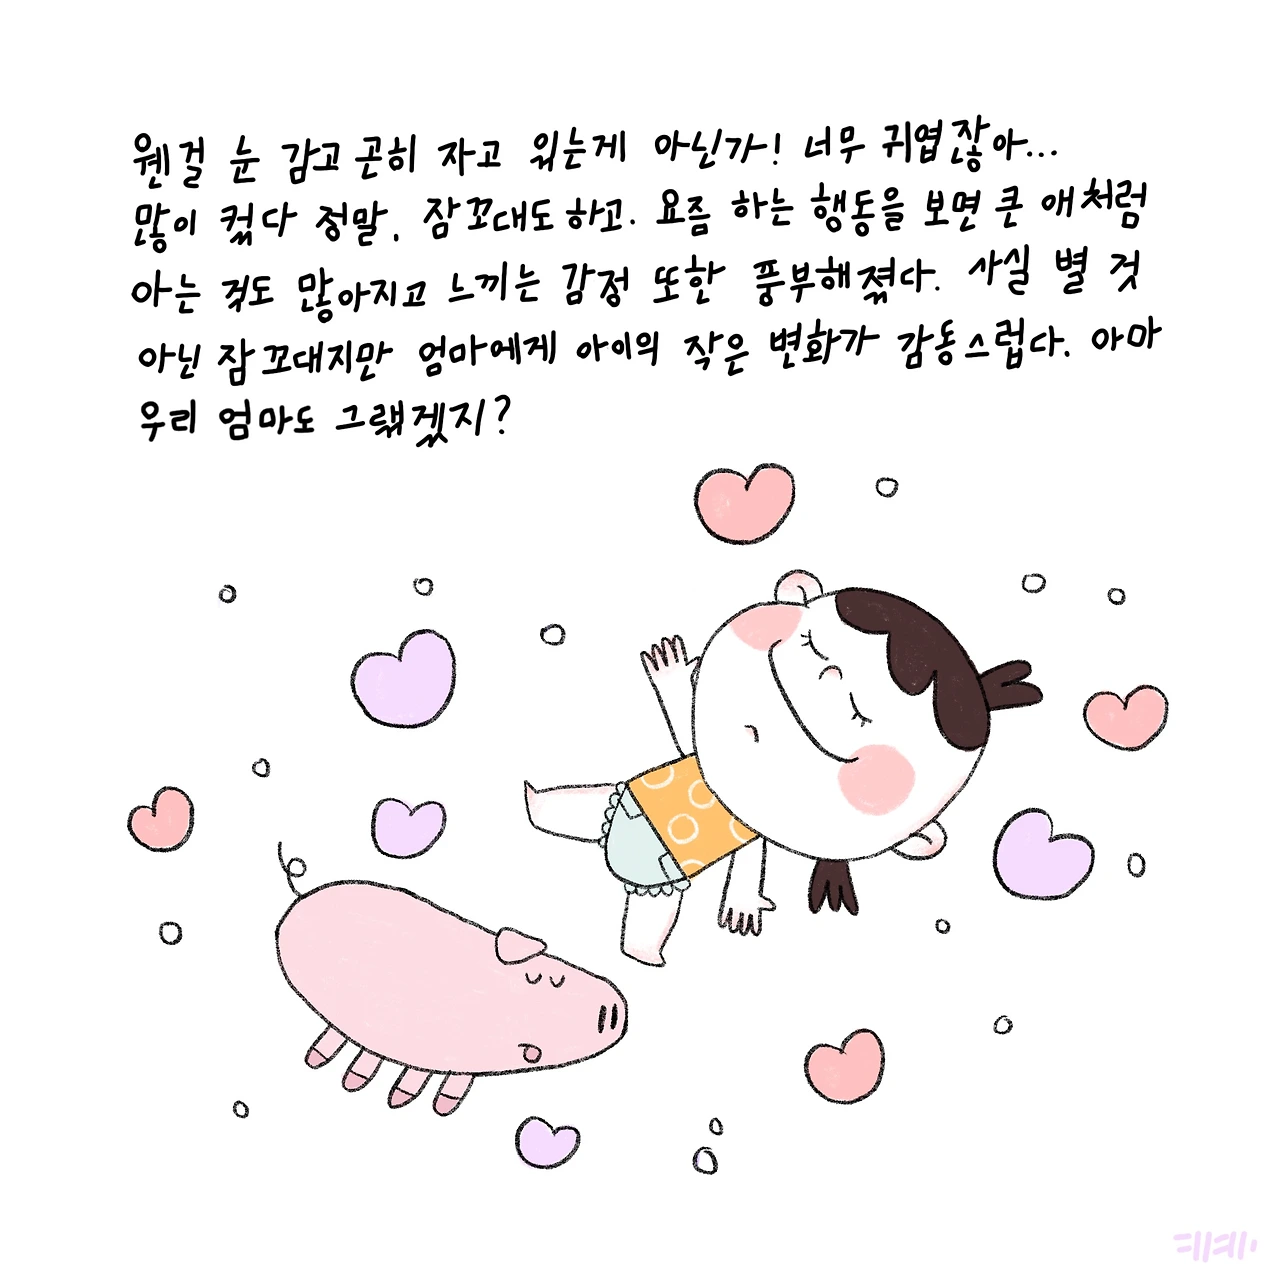 웬걸 눈 감고 곤히 자고 있는게 아닌가! 너무 귀엽잖아...
많이 컸다 정말. 잠꼬대도 하고. 요즘 하는 행동을 보면 큰 애처럼
아는 것도 많아지고 느끼는 감정 또한 풍부해졌다. 사실 별 것
아닌 잠꼬대지만 엄마에게 아이의 작은 변화가 감동스럽다. 아마
우리 엄마도 그랬겠지?